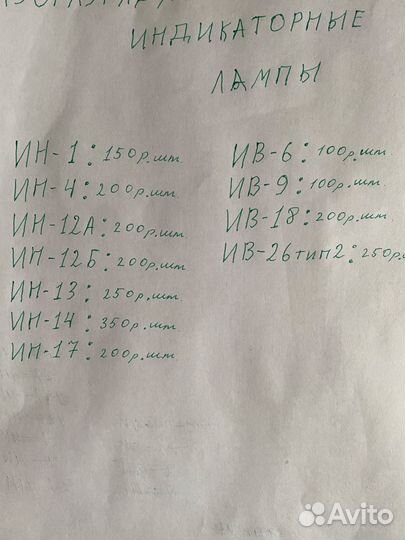 ИНДИКАТОРНЫЕ
ЛАМПЫ
ИН-1: 150р.шт.
ИН-4: 200р.шт.
ИН-12А: 200р.шт.
ИН-12Б: 200р.шт.
ИН-13: 250р.шт.
ИН-14: 350р.шт.
ИН-17: 200р.шт.
ИВ-6: 100р.шт.
ИВ-9: 100р.шт.
ИВ-18: 200р.шт.
ИВ-26тип2: 250р.
Avito